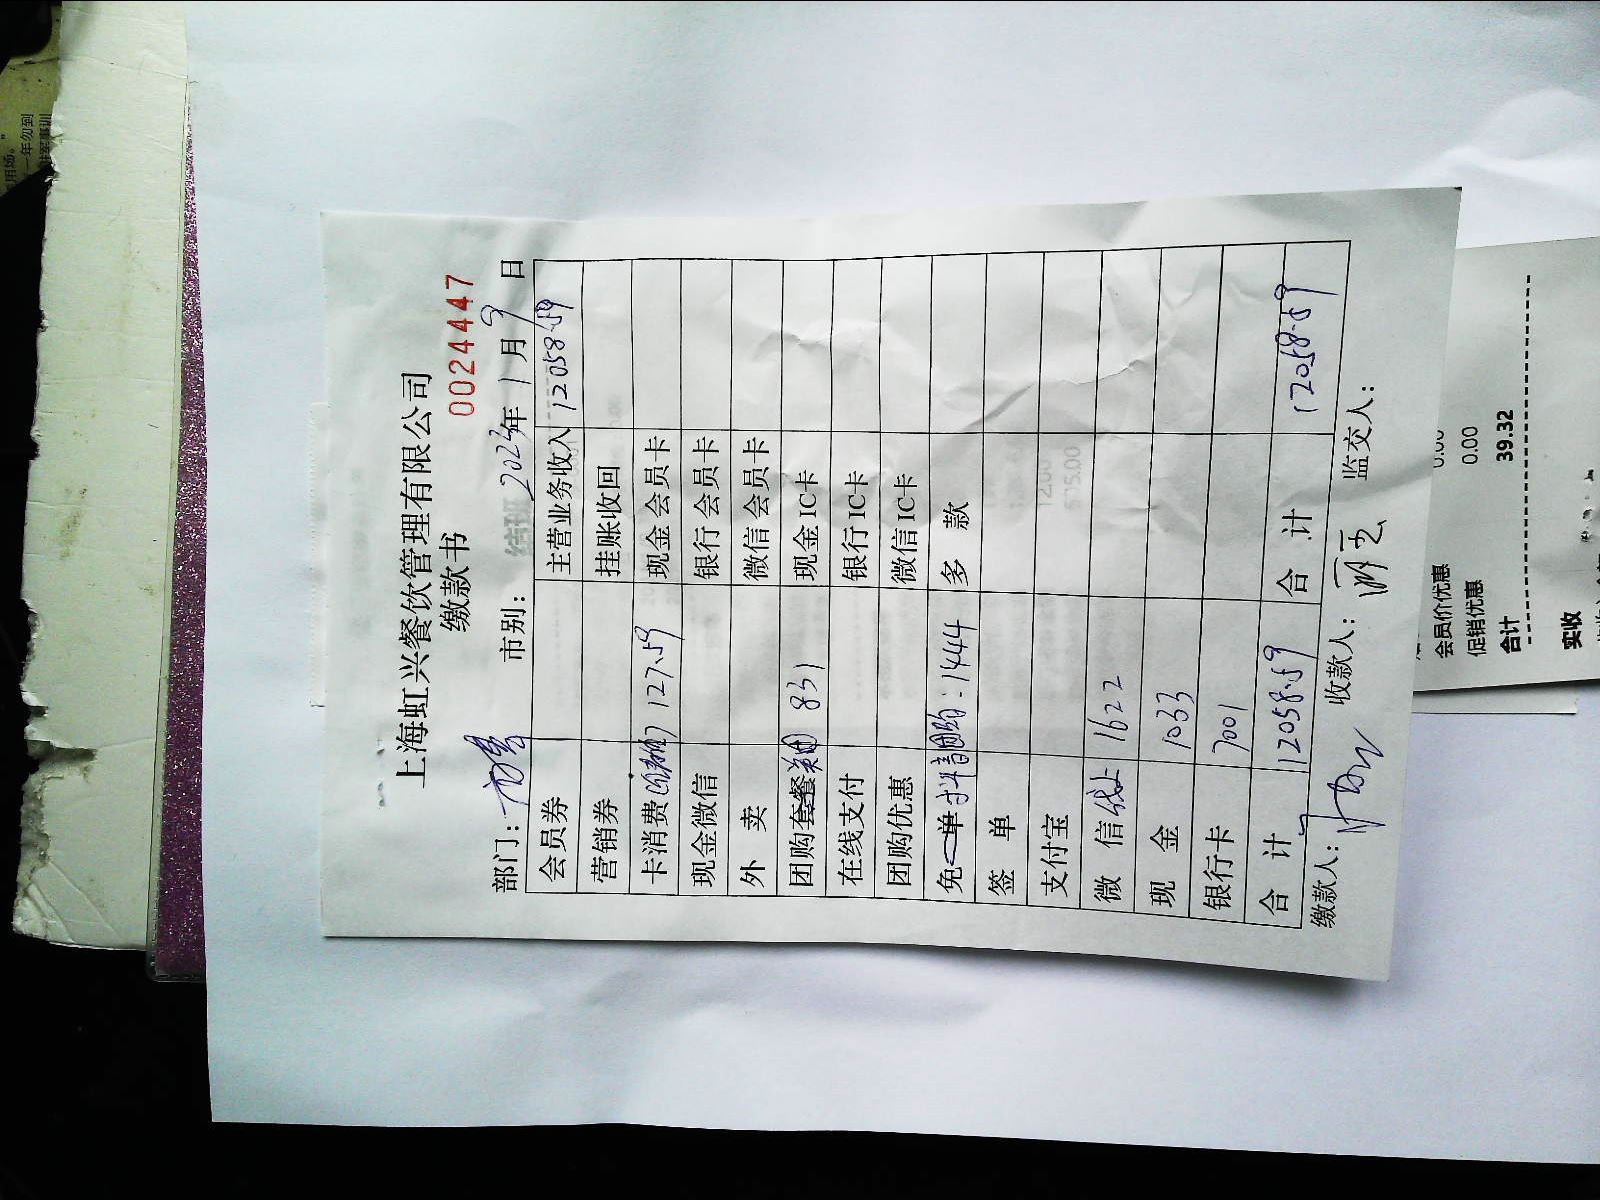 上海虹兴餐饮管理有限公司
缴款书
0024447
部门： 市别： 2023年 1月 9日
会员券 主营业务收入 12058.59
营销券 挂账收回
卡消费 127.59 现金会员卡
现金微信 银行会员卡
外 卖 微信会员卡
团购套餐美团 831 现金IC卡
在线支付 银行IC卡
团购优惠 微信IC卡
免 单 抖音团购：1444 多 款
签 单
支付宝
微 信 线上 1622
现 金 1033
银行卡 7001
合 计 12058.59 合 计 12058.59
缴款人： 收款人： 监交人：
0.00
会员价优惠 0.00
促销优惠
合计 39.32
实收
用场。”
一年勿到